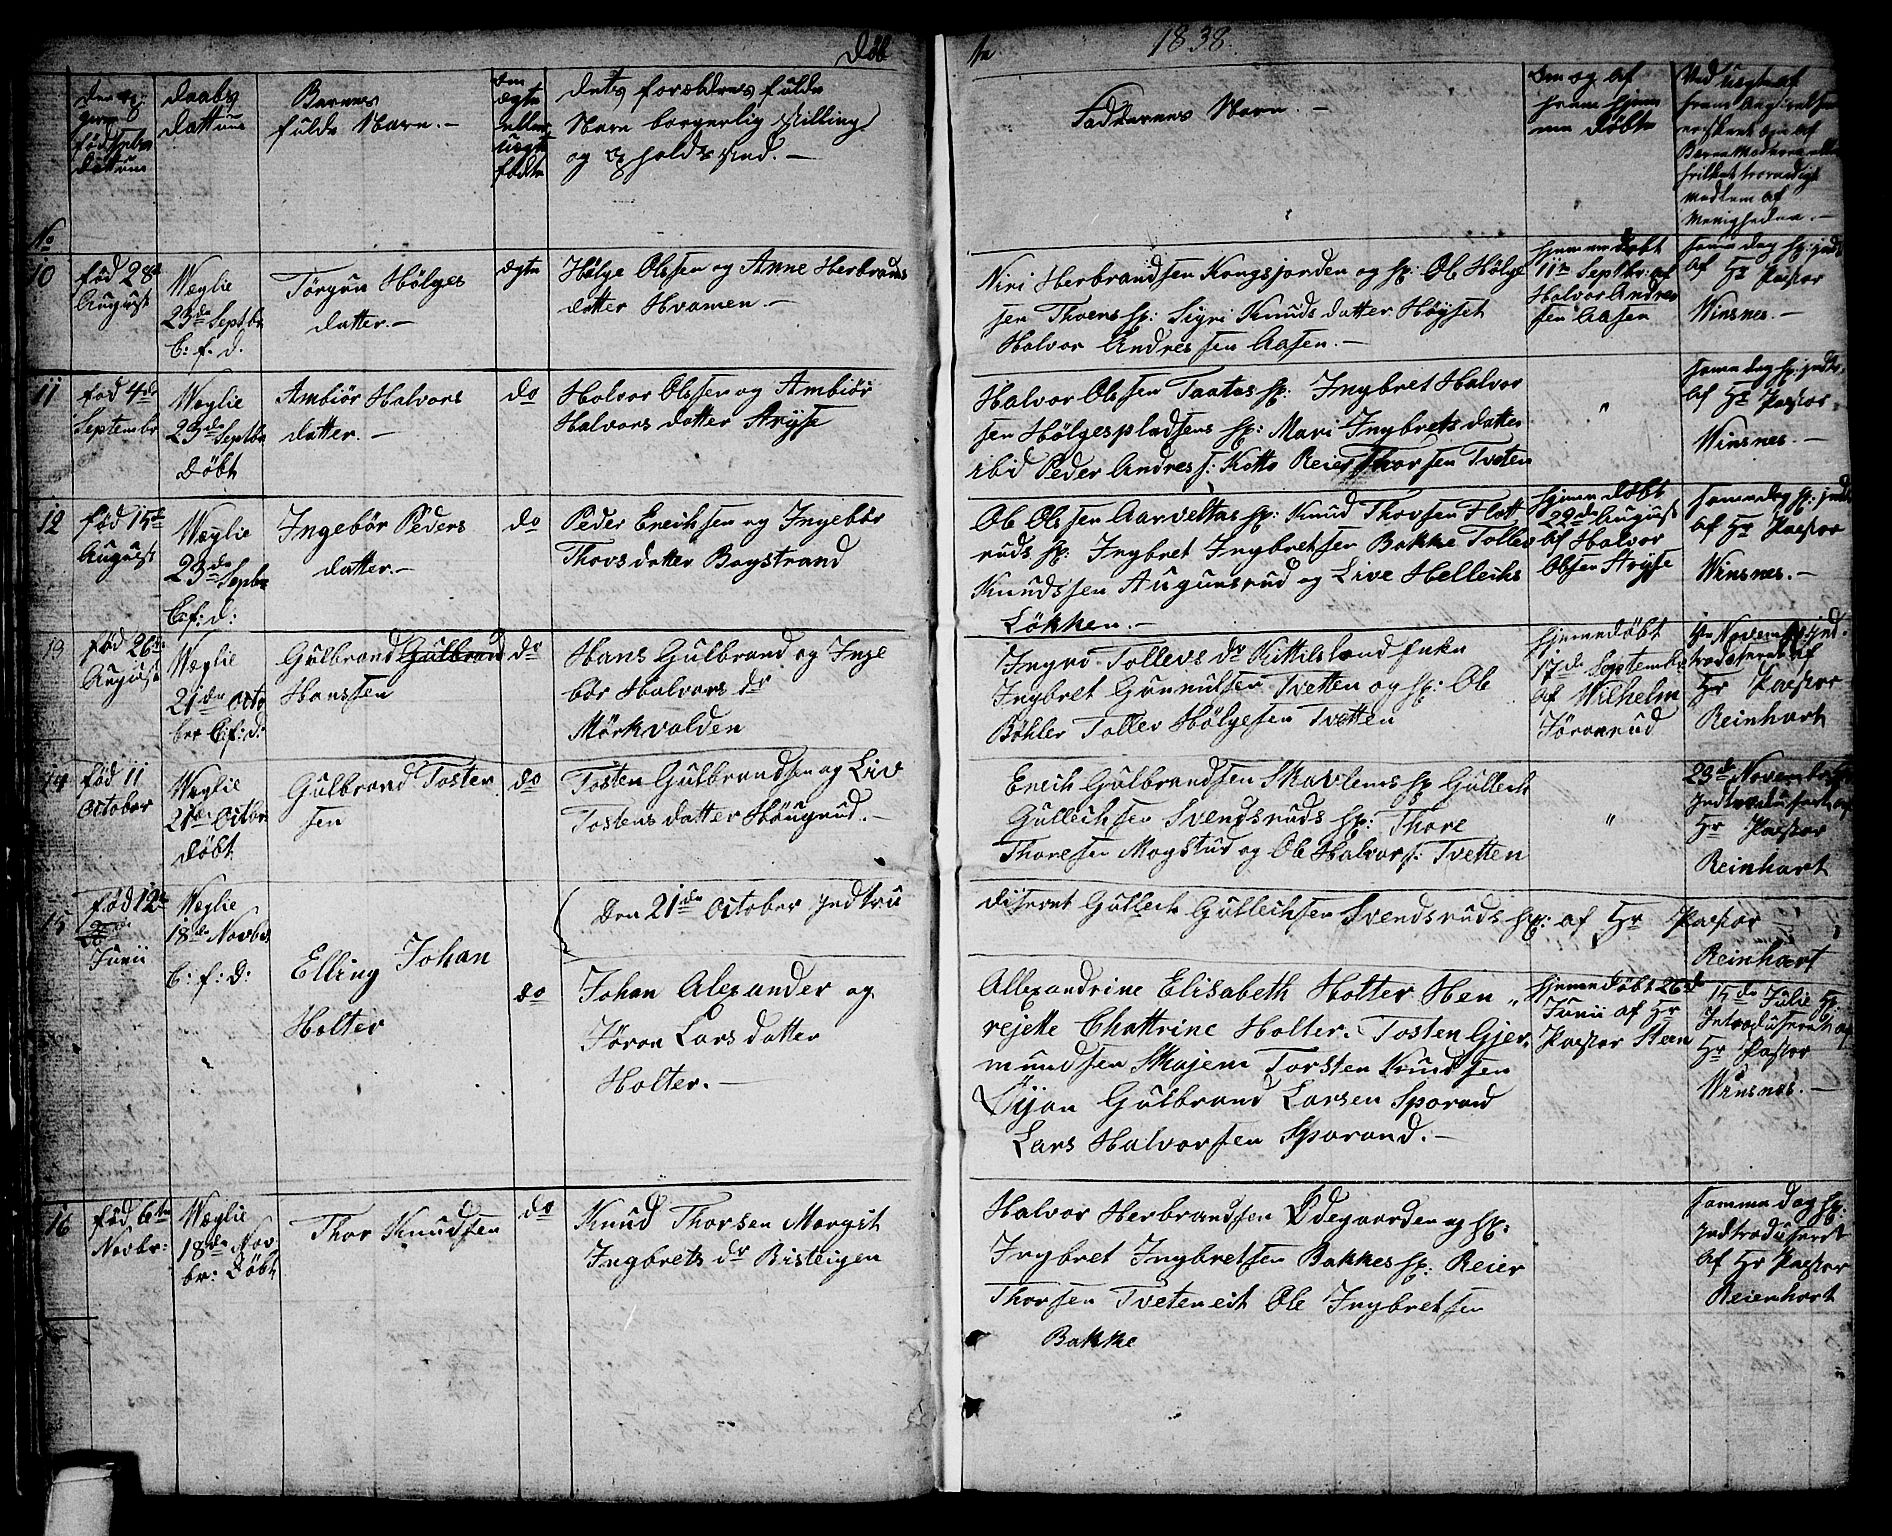 Döb te 1838.
No
födsels dattum
daabs dattum
Barnes fulde Navn. —
om ægte eller uægte födte
dets forældres fulde
Navn borgerlig Stilling
og opholds sted. —
Faddernes Navn. —
naar og af hvem hjemme döbte
10
föd 28de
August
Weglie
23de Septbr
C. f. d.
Törgun Hölges
datter. —
ægte
Hölge Olssen og Anne Herbrands
datter Hvamen. —
Niri Herbrandsen Kongsjorden og Hp: Ole Hölge
sen Thoens Hp: Sigri Knuds datter Höyset
Halvor Andres sen Aasen. —
hjemmedöbt
11te Septbr: af
Halvor Andres
sen Aasen
samme dag Hp: indt:
af Hr Pastor
Winsnes. —
11
föd 4de
Septembr
Weglie
23de Septbr
Döbt
Ambiör Halvors
datter. —
do
Halvor Olssen og Ambiör
Halvors datter Stryse
Halvor Olssen Taatas Hp: Ingbret Halvor
sen Hölgespladsens Hp: Mari Ingbrets datter
ibid Peder Andres s: Kitte Reier Thorsen Tveten
"
samme dag Hp: indtr:
af Hr Pastor
Winsnes. —
12
föd 15de
August
Weglie
23de Septbr
C: f: d:
Ingebör Peders
datter. —
do
Peder Erichsen og Ingebör
Thovs datter Bogstrand
Ole Olssen Aarveltas Hp: Knud Thovsen Flott
ruds Hp: Ingbret Ingbretsen Bakke Tollev
Knudssen Augunsrud og Live Hellechs
Lökken. —
hjemmedöbt
22de August
af Halvor
Olssen Stryse
samme dag Hp: indt
af Hr Pastor
Winsnes. —
13
föd 26de
August
Weglie
21de Octo
ber C: f: d:
Gulbrand Gulbrand
Hanssen
do
Hans Gulbrand og Inge
bör Halvors dr
Mörkvolden
Ingri Tollevs dr Kittilsland enke
Ingbret Gunnulsen Tvetten og Hp: Ole
Böhler Tollev Hölgesen Tvetten
hjemmedöbt
17de September
af Wilhelm
Jöranrud
Novemb Hp Ind:
troduseret af
Hr Pastor
Reinhart
14
föd 11
October
Weglie
21de Octbr
döbt
Gulbrand Tosten
sen
do
Tosten Gulbrandsen og Liv
Tostens datter Hougrud. —
Erich Gulbrandsen Skavlens Hp Gullech
Gullechsen Svendsruds Hp: Thore
Thoresen Mogstud og Ole Halvors: Tvetten
"
23de November Hp
Indtroduseret af
Hr Pastor
Reinhart
15
föd 12te
Junii
Weglie
18de Novbr
C: f: d:
Elling Johan
Holter
do
Den 21de October Indtro
duseret Gullech Gullechsen Svendsruds Hp: af Hr Pastor
Reinhart
Johan Alexander og
Jöran Lars datter
Holter. —
Allexandrine Elisabeth Holter Hen
rejette Chattrine Holter. Tosten Gjer
mundsen Skajem Torsten Knudsen
Öijan Gulbrand Larsen Sporand
Lars Halvorsen Sporand. —
hjemmedöbt 26de
Junii af Hr
Pastor Steen
15de Julie Hp
Introduseret af
Hr Pastor
Winsnes. —
16
föd 6te
Novbr:
Weglie
18de Nov
br: Döbt
Thor Knudsen
do
Knud Thorsen Margit
Ingbrets dr Bisteigen
Halvor Herbrandsen Ödegaarden og Hp:
Ingbret Ingbretsen Bakkes Hp: Reier
Thorsen Tveteneit Ole Ingbretsen
Bakke
samme dag Hp:
Indtroduseret
af Hr Pastor
Reienhart